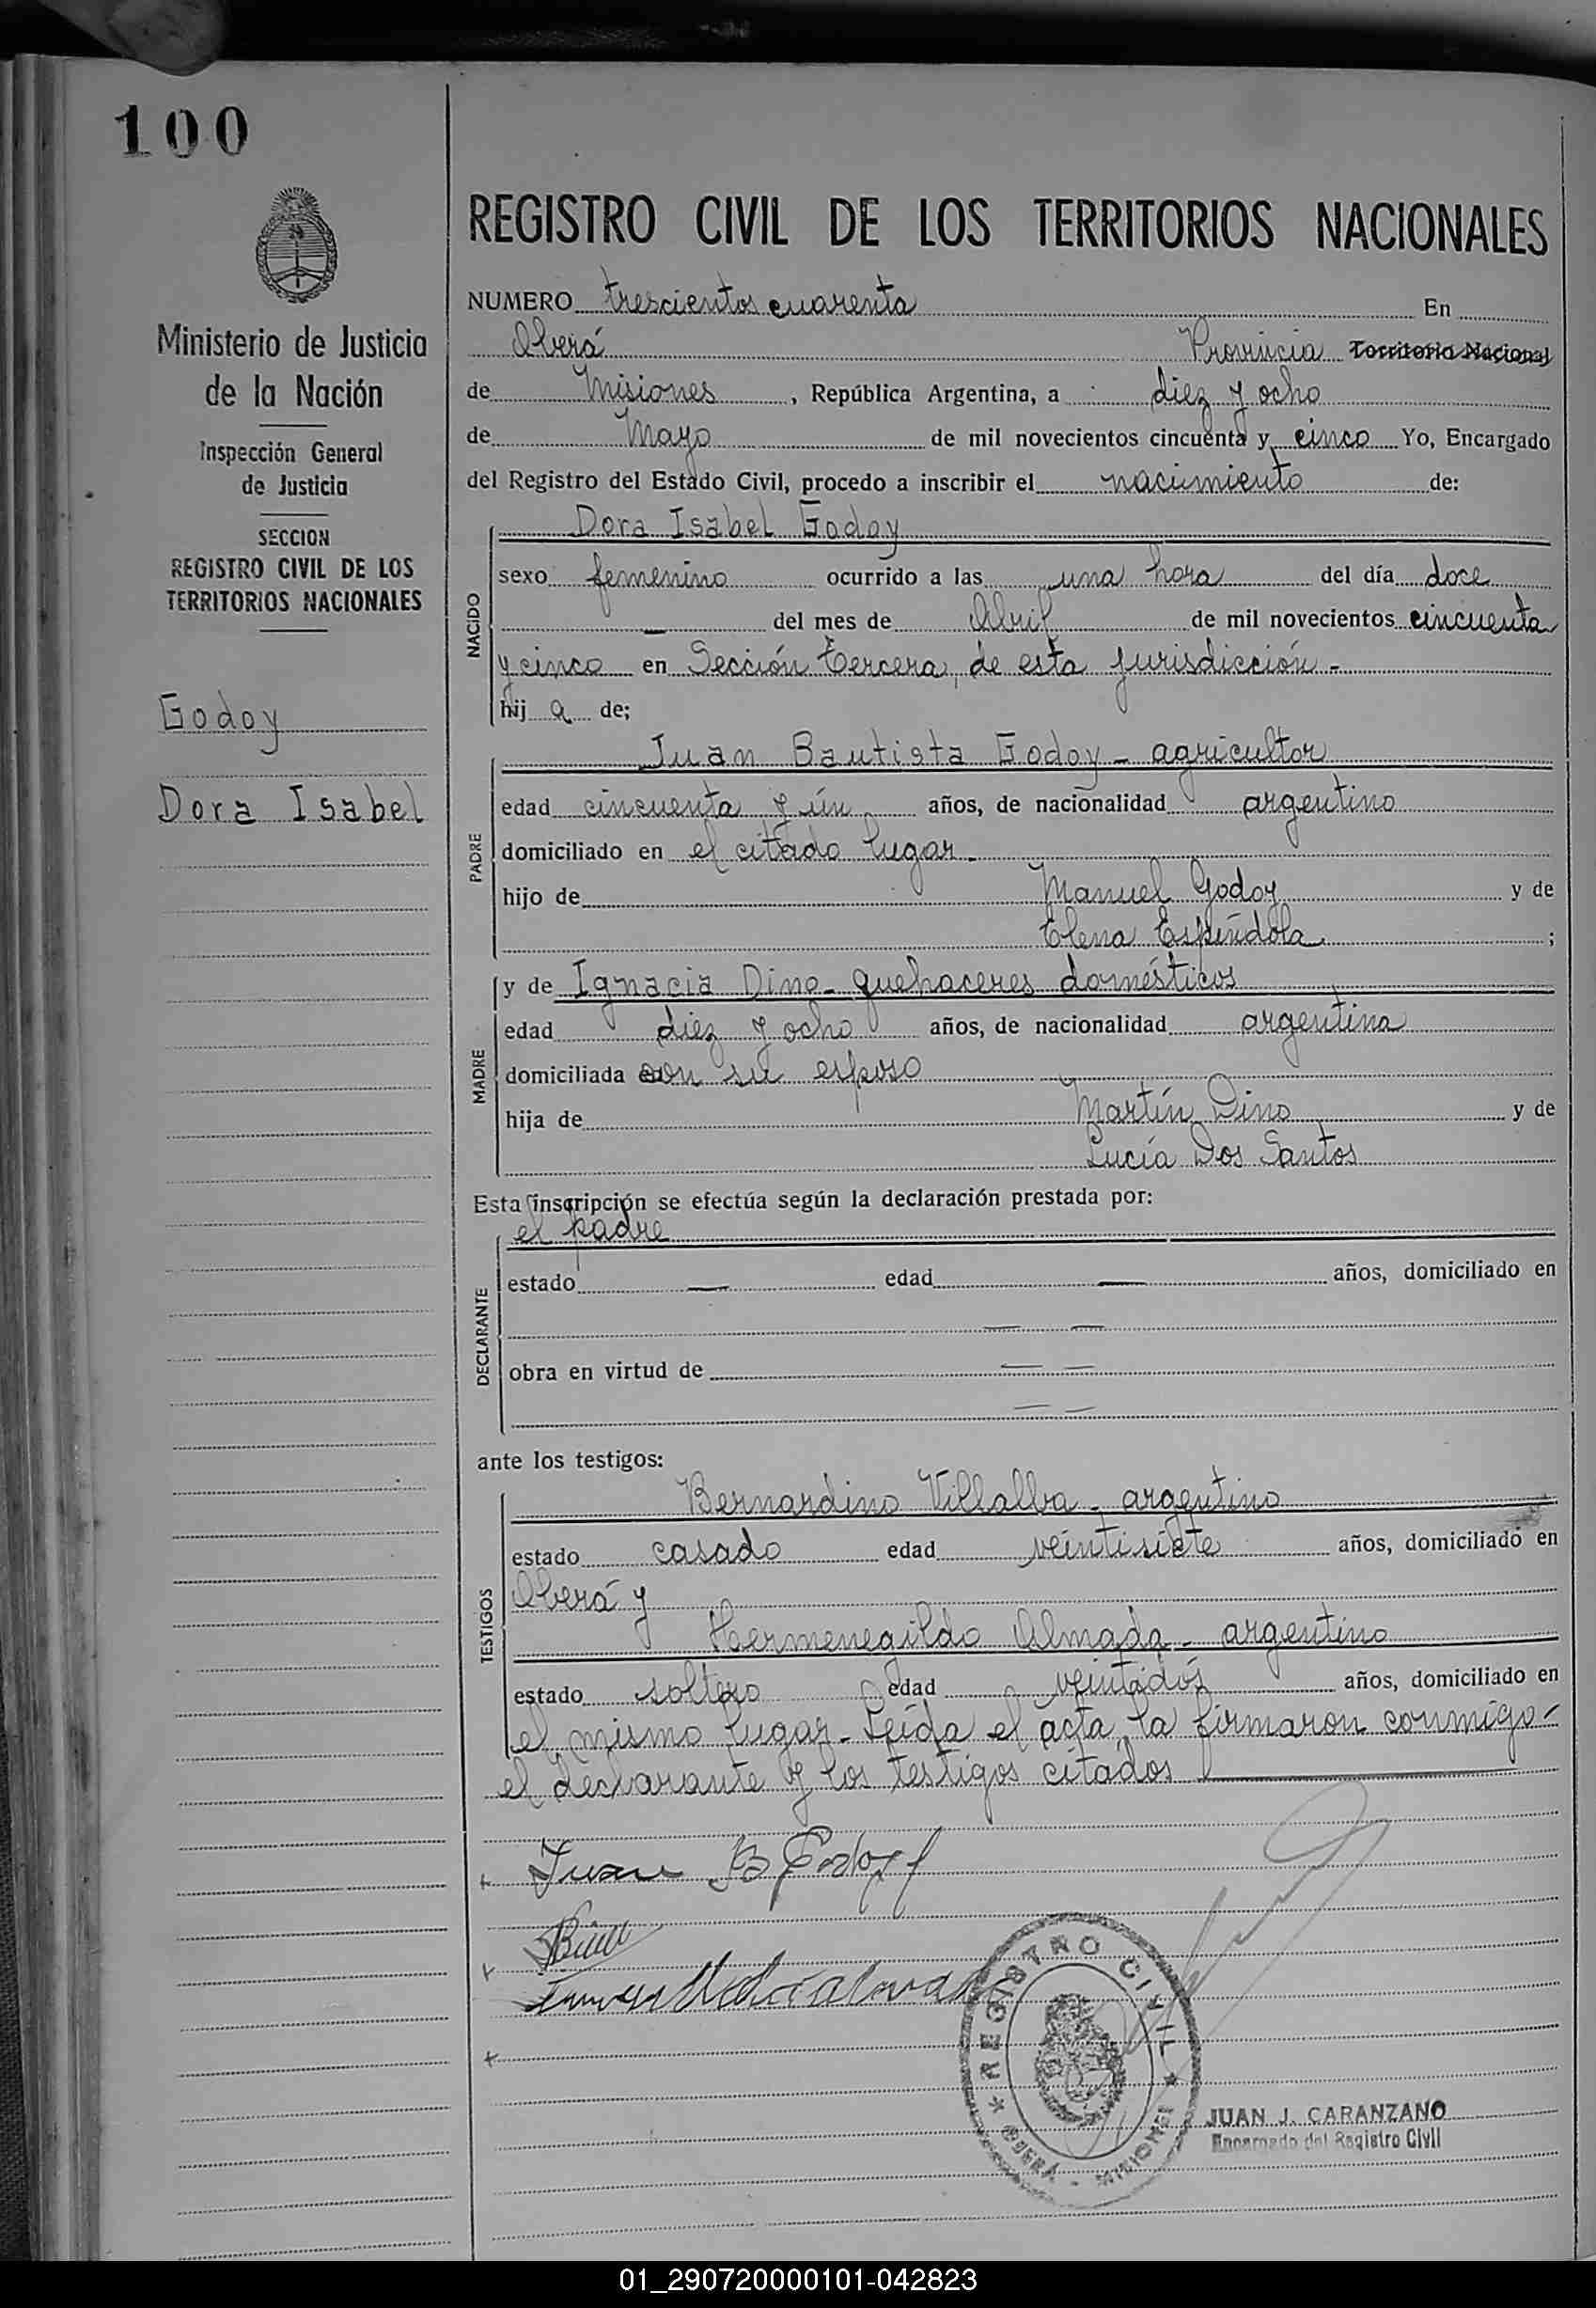 100
Ministerio de Justicia
de la Nación
Inspección General
de Justicia
SECCION
REGISTRO CIVIL DE LOS
TERRITORIOS NACIONALES
Godoy
Dora Isabel
REGISTRO CIVIL DE LOS TERRITORIOS NACIONALES
NUMERO trescientos cuarenta En
Oberá Provincia Territorio Nacional
de Misiones, República Argentina, a diez y ocho
de Mayo de mil novecientos cincuenta y cinco Yo, Encargado
del Registro del Estado Civil, procedo a inscribir el nacimiento de:
NACIDO
Dora Isabel Godoy
sexo femenino ocurrido a las una hora del día doce
— del mes de Abril de mil novecientos cincuenta
y cinco en Sección Tercera, de esta jurisdicción -
hij a de;
PADRE
Juan Bautista Godoy - agricultor
edad cincuenta y ún años, de nacionalidad argentino
domiciliado en el citado lugar -
hijo de Manuel Godoy y de
Elena Espíndola ;
MADRE
y de Ignacia Dino - quehaceres domésticos
edad diez y ocho años, de nacionalidad argentina
domiciliada con su esposo
hija de Martín Dino y de
Lucía Dos Santos
Esta inscripción se efectúa según la declaración prestada por:
DECLARANTE
el padre
estado — edad — años, domiciliado en
— —
obra en virtud de — —
— —
ante los testigos:
TESTIGOS
Bernardino Villalba - argentino
estado casado edad veintisiete años, domiciliado en
Oberá y
Hermenegildo Almada - argentino
estado soltero edad veintidós años, domiciliado en
el mismo lugar - Leída el acta, la firmaron conmigo -
el declarante y los testigos citados
Juan B Godoy
REGISTRO CIVIL
OBERÁ - MISIONES
JUAN J. CARANZANO
Encargado del Registro Civil
01_290720000101-042823